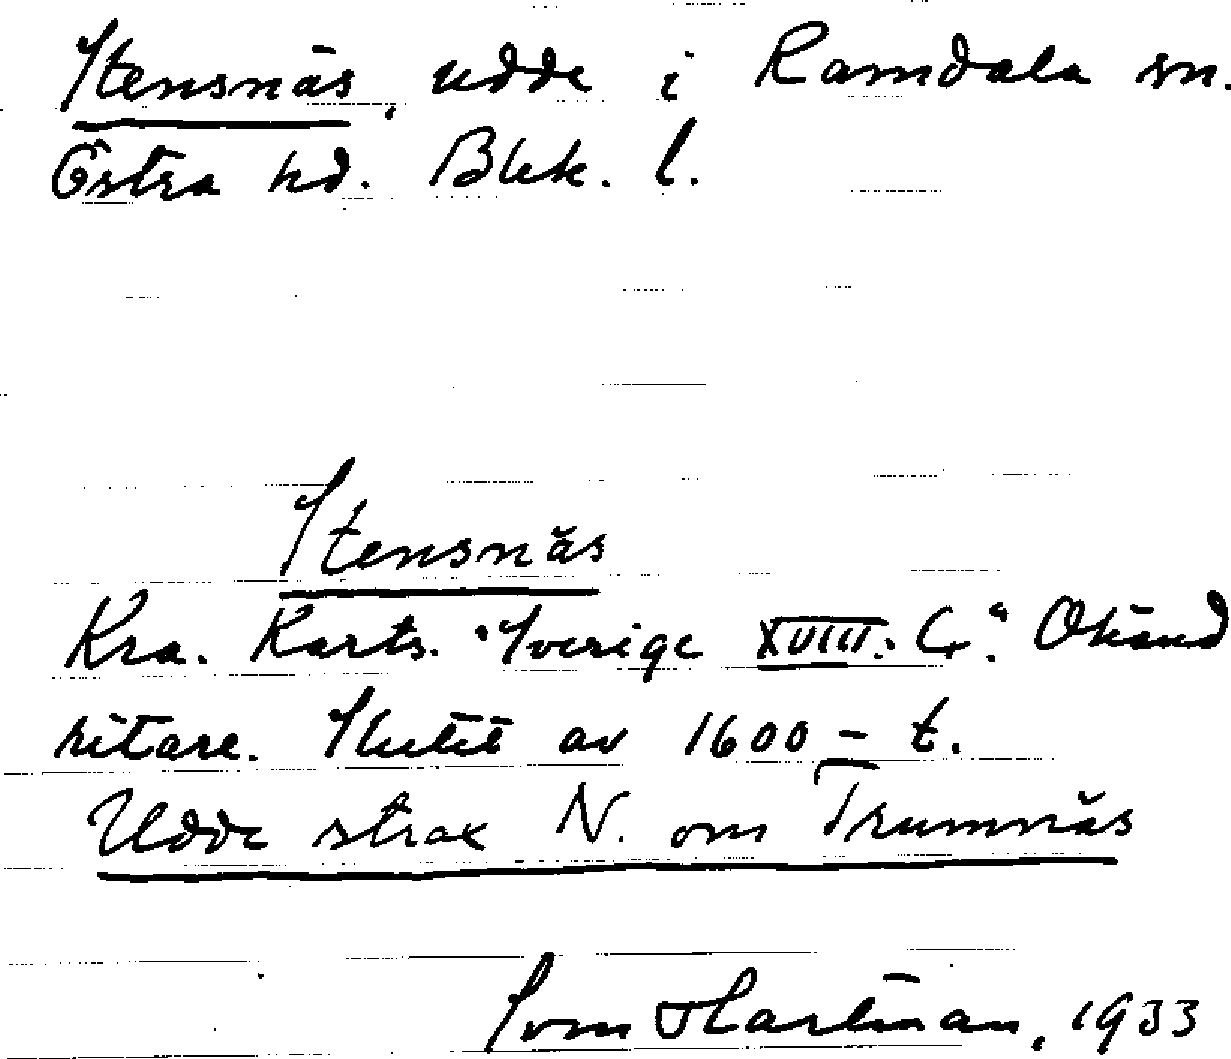 Stensnäs, udde i Ramdala sn.
Östra hd. Blek. l.
Stensnäs
Kra. Karts. "Sverige XVIII: G." Okänd
ritare. Slutet av 1600-t.
Udde strax N. om Trumnäs
Sven Hartman, 1933